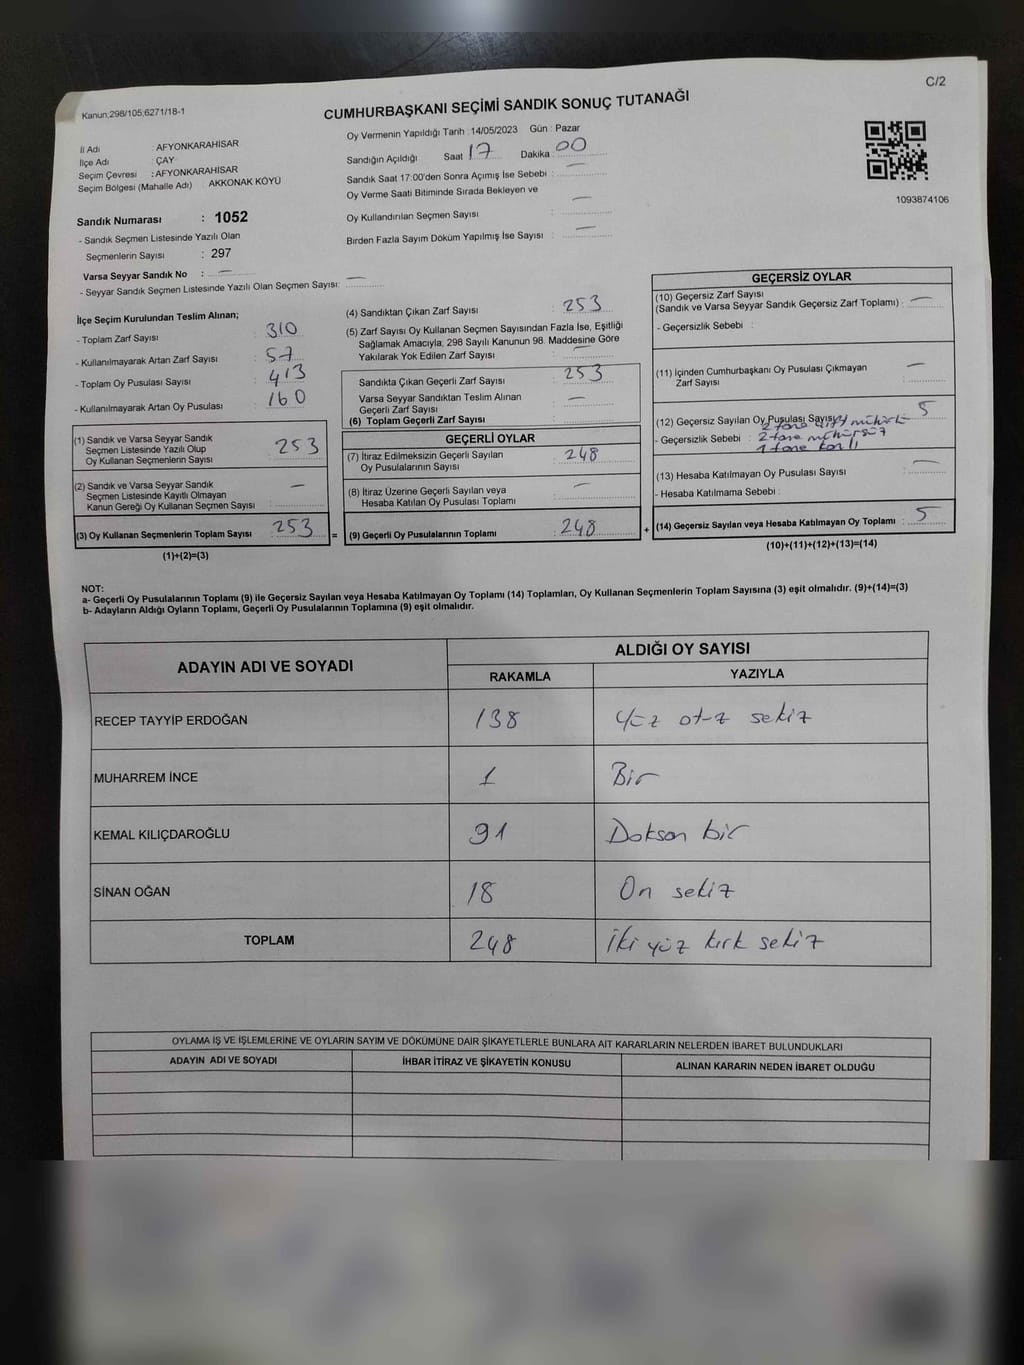 C/2
Kanun;298/105;6271/18-1
CUMHURBAŞKANI SEÇİMİ SANDIK SONUÇ TUTANAĞI
İl Adı : AFYONKARAHİSAR
İlçe Adı : ÇAY
Seçim Çevresi : AFYONKARAHİSAR
Seçim Bölgesi (Mahalle Adı) AKKONAK KÖYÜ
Oy Vermenin Yapıldığı Tarih : 14/05/2023 Gün : Pazar
Sandığın Açıldığı Saat 17 Dakika : 00
Sandık Saat 17:00'den Sonra Açımış İse Sebebi : —
Oy Verme Saati Bitiminde Sırada Bekleyen ve
Oy Kullandırılan Seçmen Sayısı : —
Birden Fazla Sayım Döküm Yapılmış İse Sayısı : —
1093874106
Sandık Numarası : 1052
- Sandık Seçmen Listesinde Yazılı Olan
Seçmenlerin Sayısı : 297
Varsa Seyyar Sandık No : —
- Seyyar Sandık Seçmen Listesinde Yazılı Olan Seçmen Sayısı: —
İlçe Seçim Kurulundan Teslim Alınan;
- Toplam Zarf Sayısı : 310
- Kullanılmayarak Artan Zarf Sayısı : 57
- Toplam Oy Pusulası Sayısı : 413
- Kullanılmayarak Artan Oy Pusulası : 160
(1) Sandık ve Varsa Seyyar Sandık
Seçmen Listesinde Yazılı Olup
Oy Kullanan Seçmenlerin Sayısı : 253
(2) Sandık ve Varsa Seyyar Sandık
Seçmen Listesinde Kayıtlı Olmayan
Kanun Gereği Oy Kullanan Seçmen Sayısı : —
(3) Oy Kullanan Seçmenlerin Toplam Sayısı : 253 =
(1)+(2)=(3)
(4) Sandıktan Çıkan Zarf Sayısı : 253
(5) Zarf Sayısı Oy Kullanan Seçmen Sayısından Fazla İse, Eşitliği
Sağlamak Amacıyla, 298 Sayılı Kanunun 98. Maddesine Göre
Yakılarak Yok Edilen Zarf Sayısı : —
Sandıkta Çıkan Geçerli Zarf Sayısı : 253
Varsa Seyyar Sandıktan Teslim Alınan
Geçerli Zarf Sayısı : —
(6) Toplam Geçerli Zarf Sayısı :
GEÇERLİ OYLAR
(7) İtiraz Edilmeksizin Geçerli Sayılan
Oy Pusulalarının Sayısı : 248
(8) İtiraz Üzerine Geçerli Sayılan veya
Hesaba Katılan Oy Pusulası Toplamı : —
(9) Geçerli Oy Pusulalarının Toplamı : 248 +
GEÇERSİZ OYLAR
(10) Geçersiz Zarf Sayısı
(Sandık ve Varsa Seyyar Sandık Geçersiz Zarf Toplamı) : —
- Geçersizlik Sebebi :
(11) İçinden Cumhurbaşkanı Oy Pusulası Çıkmayan
Zarf Sayısı : —
(12) Geçersiz Sayılan Oy Pusulası Sayısı : 5
2 tane çift mühürlü
- Geçersizlik Sebebi : 2 tane mühürsüz
1 tane
(13) Hesaba Katılmayan Oy Pusulası Sayısı : —
- Hesaba Katılmama Sebebi :
(14) Geçersiz Sayılan veya Hesaba Katılmayan Oy Toplamı : 5
(10)+(11)+(12)+(13)=(14)
NOT:
a- Geçerli Oy Pusulalarının Toplamı (9) ile Geçersiz Sayılan veya Hesaba Katılmayan Oy Toplamı (14) Toplamları, Oy Kullanan Seçmenlerin Toplam Sayısına (3) eşit olmalıdır. (9)+(14)=(3)
b- Adayların Aldığı Oyların Toplamı, Geçerli Oy Pusulalarının Toplamına (9) eşit olmalıdır.
ADAYIN ADI VE SOYADI ALDIĞI OY SAYISI
RAKAMLA YAZIYLA
RECEP TAYYİP ERDOĞAN 138 Yüz otuz sekiz
MUHARREM İNCE 1 Bir
KEMAL KILIÇDAROĞLU 91 Doksan bir
SİNAN OĞAN 18 On sekiz
TOPLAM 248 İki yüz kırk sekiz
OYLAMA İŞ VE İŞLEMLERİNE VE OYLARIN SAYIM VE DÖKÜMÜNE DAİR ŞİKAYETLERLE BUNLARA AİT KARARLARIN NELERDEN İBARET BULUNDUKLARI
ADAYIN ADI VE SOYADI İHBAR İTİRAZ VE ŞİKAYETİN KONUSU ALINAN KARARIN NEDEN İBARET OLDUĞU